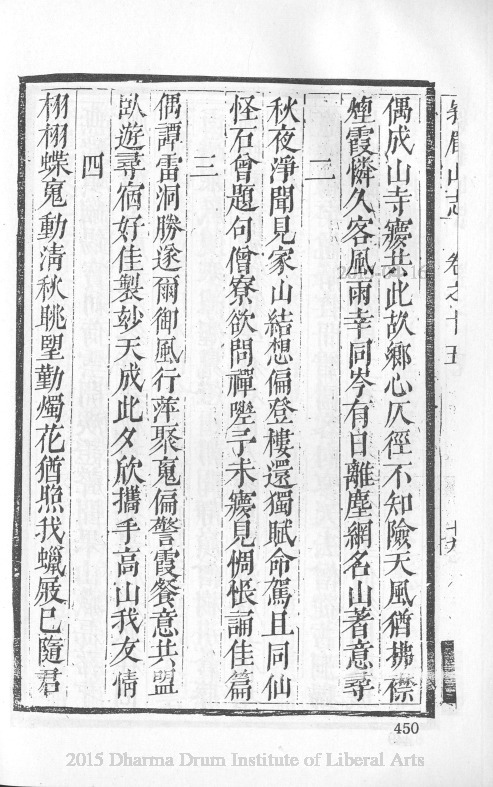 峩眉山志 卷之十五 十九
偶成山寺㾕共此故鄉心仄徑不知險天風猶拂襟
煙霞憐久客風雨幸同岑有日離塵網名山著意尋
二
秋夜淨聞見家山結想偏登樓還獨賦命駕且同仙
怪石曾題句僧寮欲問禪嗟予未㾕見惆悵誦佳篇
三
偶譚雷洞勝遂爾御風行萍聚䰟偏警霞餐意共盟
臥遊尋宿好佳製玅天成此夕欣攜手高山我友情
四
栩栩蝶䰟動清秋眺朢勤燭花猶炤我蠟屐已隨君
450
2015 Dharma Drum Institute of Liberal Arts